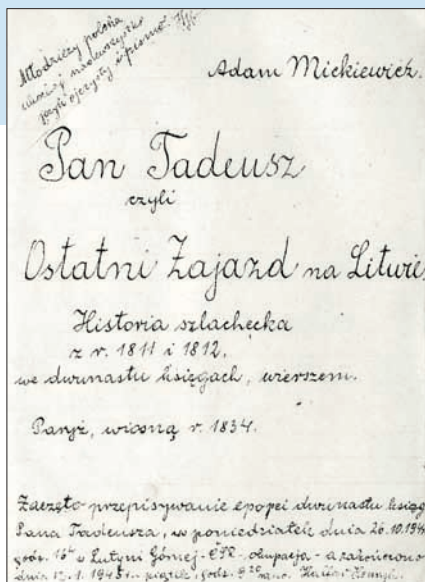 Młodzieży polska
nade wszystko
język ojczysty i pismo
Adam Mickiewicz.
Pan Tadeusz
czyli
Ostatni Zajazd na Litwie
Historia szlachecka
z r. 1811 i 1812,
we dwunastu księgach, wierszem.
Paryż, wiosną r. 1834.
Zaczęto przepisywanie epopei dwunastu ksiąg
Pana Tadeusza, w poniedziałek dnia 26.10.194
godz. 16⁴⁵ w Lutyni Górnej - okupacja - a zakończono
dnia 1. 1945 r. piątek, godz. 9²⁰